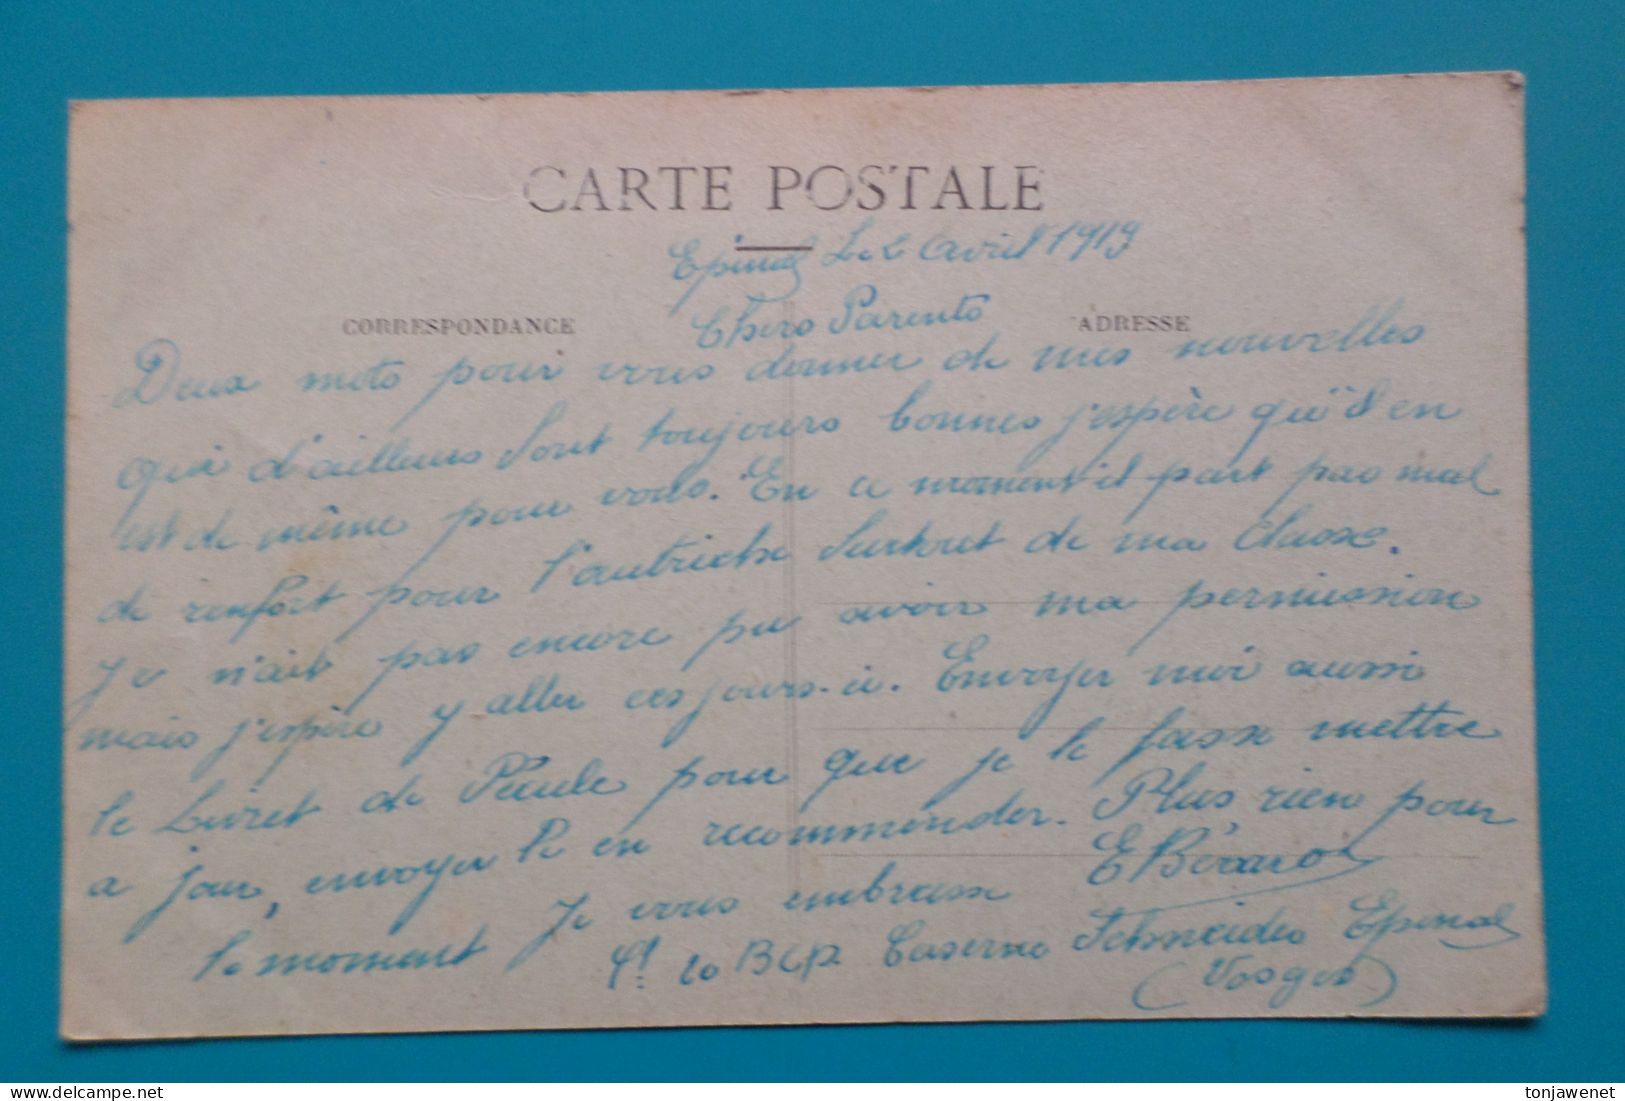 CARTE POSTALE
Epinal Le 2 Avril 1919
CORRESPONDANCE
Chers Parents
ADRESSE
Deux mots pour vous donner de mes nouvelles
qui d'ailleurs sont toujours bonnes j'espère qu'il en
est de même pour vous. En ce moment il part pas mal
de renfort pour l'autriche surtout de ma Classe.
Je n'ait pas encore pu avoir ma permission
mais j'espère y aller ces jours-ci. Envoyer moi aussi
le Livret de Pécule pour que je le fasse mettre
a jour, envoyer le en recommender. Plus rien pour
le moment Je vous embrasse E Bérard
BCP Caserne Schneider Epinal
(Vosges)
tonjawenet